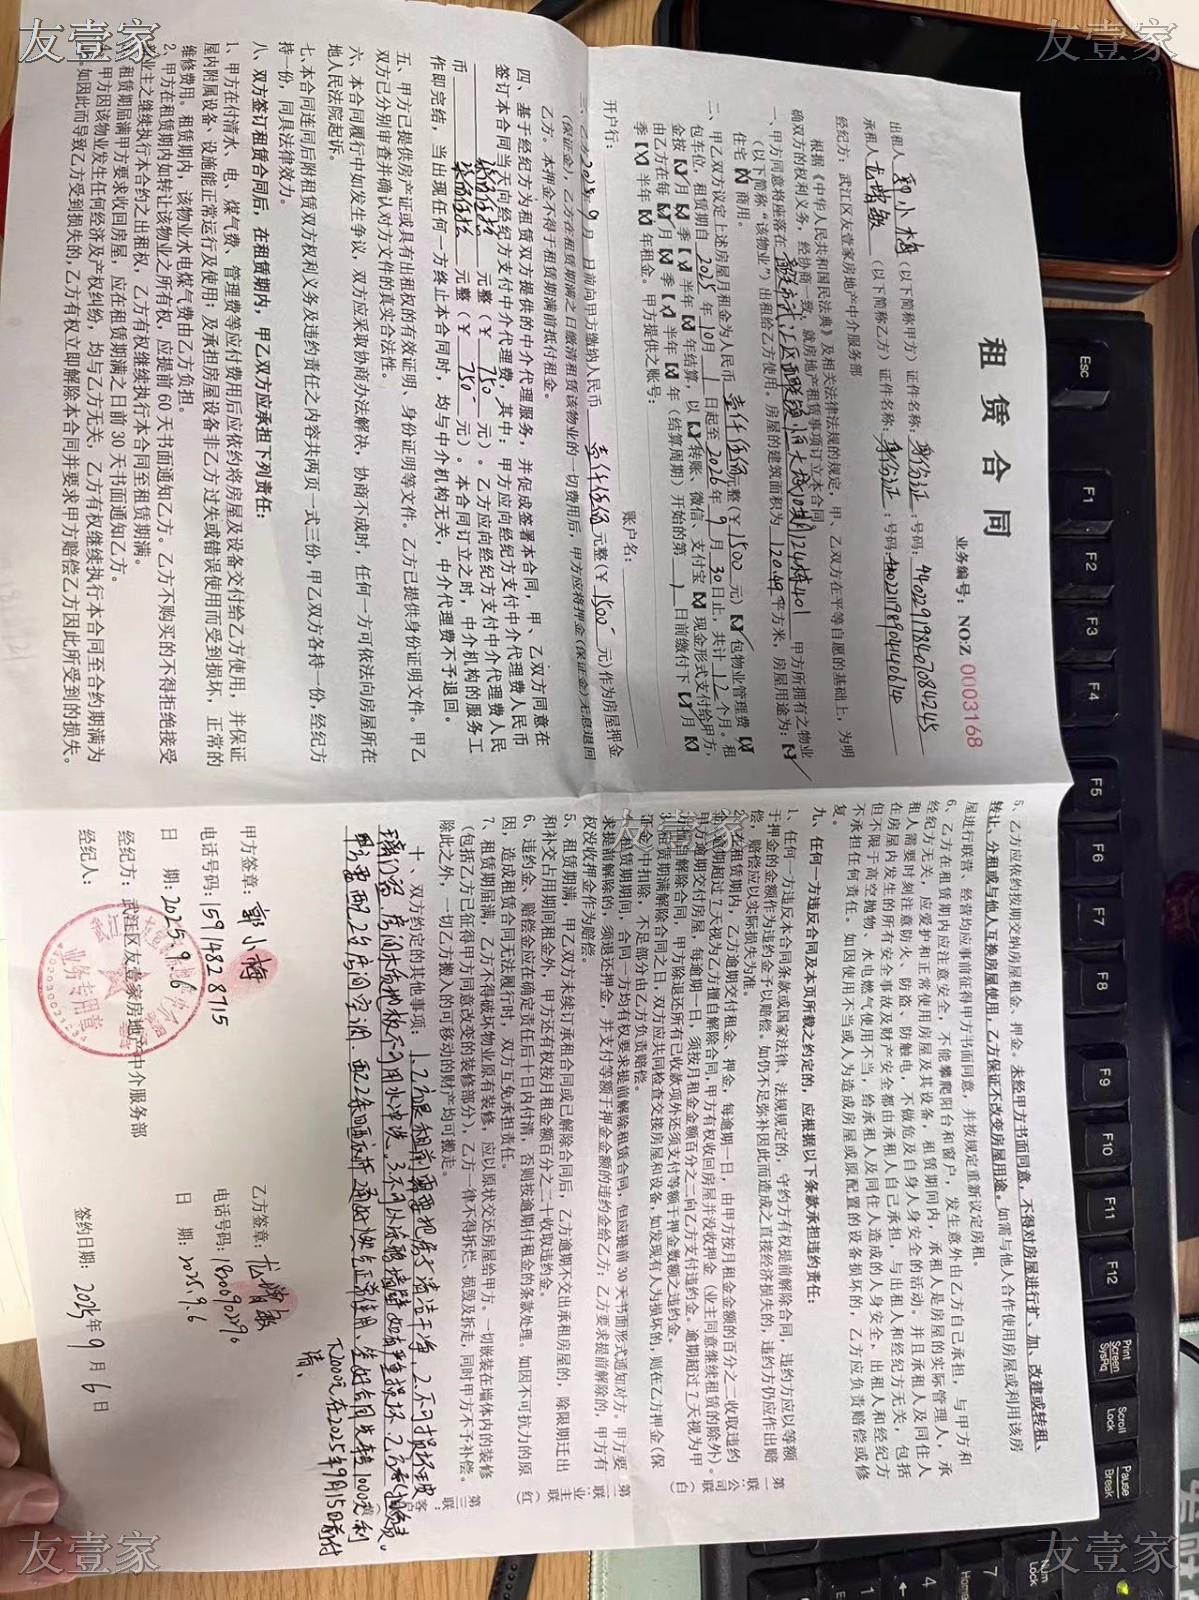 友壹家
友壹家
租赁合同
业务编号：NO:Z 0003168
出租人：郭小梅（以下简称甲方）证件名称：身份证：号码：
承租人：尤满敏（以下简称乙方）证件名称：身份证：号码：
经纪方：武江区友壹家房地产中介服务部
根据《中华人民共和国民法典》及相关法律法规的规定，甲、乙双方在平等自愿的基础上，为明
确双方的权利义务，经协商一致，就房地产租赁事项订立本合同
一、甲方同意将座落在 12栋401 甲方所拥有之物业
（以下简称“该物业”）出租给乙方使用。房屋的建筑面积为 120.49 平方米，房屋用途为：【√】
住宅【】商用。
二、甲乙双方议定上述房屋月租金为人民币 壹仟伍佰 元整（￥1500 元）【√】包物业管理费【】
包车位，租赁期自 2025 年 10 月 1 日起至 2026 年 9 月 30 日止，共计 12 个月。租
金按【√】月【】季【】半年【】年结算，以【】转账、微信、支付宝【】现金形式支付给甲方，
由乙方在每【√】月【】季【】半年【】年（结算周期）开始的第 1 日前缴付下【√】月【】
季【】半年【】年租金。甲方提供之账号：
开户行： 账户名：
三、乙方 2025 年 9 月 日前向甲方缴纳人民币 壹仟伍佰 元整（￥1500 元）作为房屋押金
（保证金），乙方在租赁期满之日缴清租赁该物业的一切费用后，甲方应将押金（保证金）无息退回
乙方。本押金不得于租赁期满前抵付租金。
四、基于经纪方为租赁双方提供的中介代理服务，并促成签署本合同，甲、乙双方同意在
签订本合同当天向经纪方支付中介代理费，其中：甲方应向经纪方支付中介代理费人民币
柒佰伍拾 元整（￥750 元）。乙方应向经纪方支付中介代理费人民
币 柒佰伍拾 元整（￥750 元）。本合同订立之时，中介机构的服务工
作即完结，当出现任何一方终止本合同时，均与中介机构无关，中介代理费不予退回。
五、甲方已提供房产证或具有出租权的有效证明、身份证明等文件。乙方已提供身份证明文件。甲乙
双方已分别审查并确认对方文件的真实合法性。
六、本合同履行中如发生争议，双方应采取协商办法解决，协商不成时，任何一方可依法向房屋所在
地人民法院起诉。
七、本合同连同后附租赁双方权利义务及违约责任之内容共两页一式三份，甲乙双方各持一份，经纪方
持一份，同具法律效力。
八、双方签订租赁合同后，在租赁期内，甲乙双方应承担下列责任：
1、甲方在付清水、电、煤气费、管理费等应付费用后应依约将房屋及设备交付给乙方使用，并保证
屋内附属设备、设施能正常运行及使用；及承担房屋设备非乙方过失或错误使用而受到损坏，正常的
维修费用。租赁期内，该物业水电煤气费由乙方负担。
2、甲方在租赁期内如转让该物业之所有权，应提前 60 天书面通知乙方。乙方不购买的不得拒绝接受
业主之继续执行本合约之出租权，乙方有权继续执行本合同至租赁期满。
租赁期届满甲方要求收回房屋，应在租赁期满之日前 30 天书面通知乙方。
甲方因该物业发生任何经济及产权纠纷，均与乙方无关，乙方有权继续执行本合同至合约期满为
如因此而导致乙方受到损失的，乙方有权立即解除本合同并要求甲方赔偿乙方因此所受到的损失。
5、乙方应依约按期交纳房屋租金、押金。未经甲方书面同意，不得对房屋进行扩、加、改建或转租、
转让、分租或与他人互换房屋使用，乙方保证不改变房屋用途。如需与他人合作使用房屋或利用该房
屋进行联营、经营均应事前征得甲方书面同意，并按规定重新议定房租。
6、乙方在租赁期内应注意安全，不能攀爬阳台和窗户，发生意外由乙方自己承担，与甲方和
经纪方无关，应爱护和正常使用房屋及其设备，租赁期间内，承租人是房屋的实际管理人，承
租人需要时刻注意防火、防盗、防触电，不做危及自身人身安全的活动。并且承租人及同住人
在房屋内发生的所有安全事故及财产安全都由承租人自己承担，与出租人和经纪方无关，包括
但不限于高空抛物、水电燃气使用不当，给承租人及同住人造成的人身安全，出租人和经纪方
不承担任何责任。如因使用不当或人为造成房屋或原配置的设备损坏的，乙方应负责赔偿或修
复。
九、任何一方违反合同及本页所载之约定的，应根据以下条款承担违约责任：
1、任何一方违反本合同条款或国家法律、法规规定的，守约方有权提前解除合同，违约方应以等额
于押金的金额作为违约金予以赔偿。如仍不足弥补因此而造成之直接经济损失的，违约方仍应作出赔
偿，赔偿应以实际损失为准。
2、在租赁期内，乙方逾期交付租金、押金，每逾期一日，由甲方按月租金金额的百分之二收取违约
金，逾期超过 7 天视为乙方擅自解除合同，甲方有权收回房屋并没收押金（业主同意继续租赁的除外）。
甲方逾期交付房屋，每逾期一日，须按月租金金额百分之二向乙方支付违约金。逾期超过 7 天视为甲
方擅自解除合同，甲方除退还所有已收款项外还须支付等额于押金数额之违约金。
3、租赁期满解除合同之日，双方应共同检查交接房屋和设备，如发现有人为损坏的，则在乙方押金（保
证金）中扣除，不足部分由乙方负责赔偿。
4、租赁期期间，合同一方均有权要求提前解除租赁合同，但应提前 30 天书面形式通知对方。甲方要
求提前解除的，须退还押金，并支付等额于押金金额的违约金给乙方；乙方要求提前解除的，甲方有
权没收押金作为赔偿。
5、租赁期满，甲乙双方未续订承租合同或已解除合同后，乙方逾期不交出承租房屋的，除限期迁出
和补交占用期间租金外，甲方还有权按月租金额百分之二十收取违约金。
6、违约金、赔偿金应在确定责任后十日内付清，否则按逾期付租金的条款处理。如因不可抗力的原
因，造成租赁合同无法履行时，双方互免承担责任。
7、租赁期届满，乙方不得破坏物业原有装修，应以原状交还房屋给甲方。一切嵌装在墙体内的装修
（包括乙方已征得甲方同意改变的装修部分），乙方一律不得拆烂、损毁及折走，同时甲方不予补偿。
除此之外，一切乙方搬入的可移动的财产均可搬走。
十、双方约定的其他事项：1.乙方退租前需要把房子清洁干净，2.不可损坏玻
璃门窗，房间木质地板不可用水冲洗，3.不可以涂鸦墙壁，如有严重损坏，乙方需
甲方需配2台房间空调，
2000元在2025年9月15日前付
清、
第一联：公司联（白） 第二联：业主联（红） 第三联：客户联
甲方签章：郭小梅 乙方签章：尤满敏
电话号码：15914828715 电话号码：
日 期：2025.9.6 日 期：2025.9.6
经纪方：武江区友壹家房地产中介服务部
经纪人： 签约日期：2025 年 9 月 6 日
业务专用章
友壹家
友壹家
友壹家
Esc
F1
F2
F3
F4
F5
F6
F7
F8
F9
F10
F11
F12
Print
Screen
SysRq
Scroll
Lock
Pause
Break
Num
Lock
7
Home
4